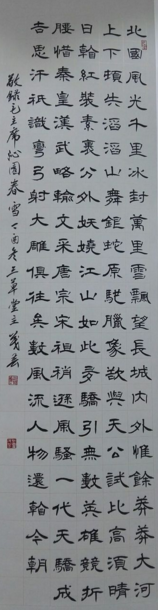 北國風光千里冰封萬里雪飄望長城內外惟餘莽莽大河
上下頓失滔滔山舞銀蛇原馳臘象欲與天公試比高須晴
日看紅裝素裹分外妖嬈江山如此多驕引無數英雄競折
腰惜秦皇漢武略輸文采唐宗宋祖稍遜風騷一代天驕成
吉思汗祇識彎弓射大雕俱往矣數風流人物還看今朝
敬錄毛主席沁園春雪丁酉冬三草堂主